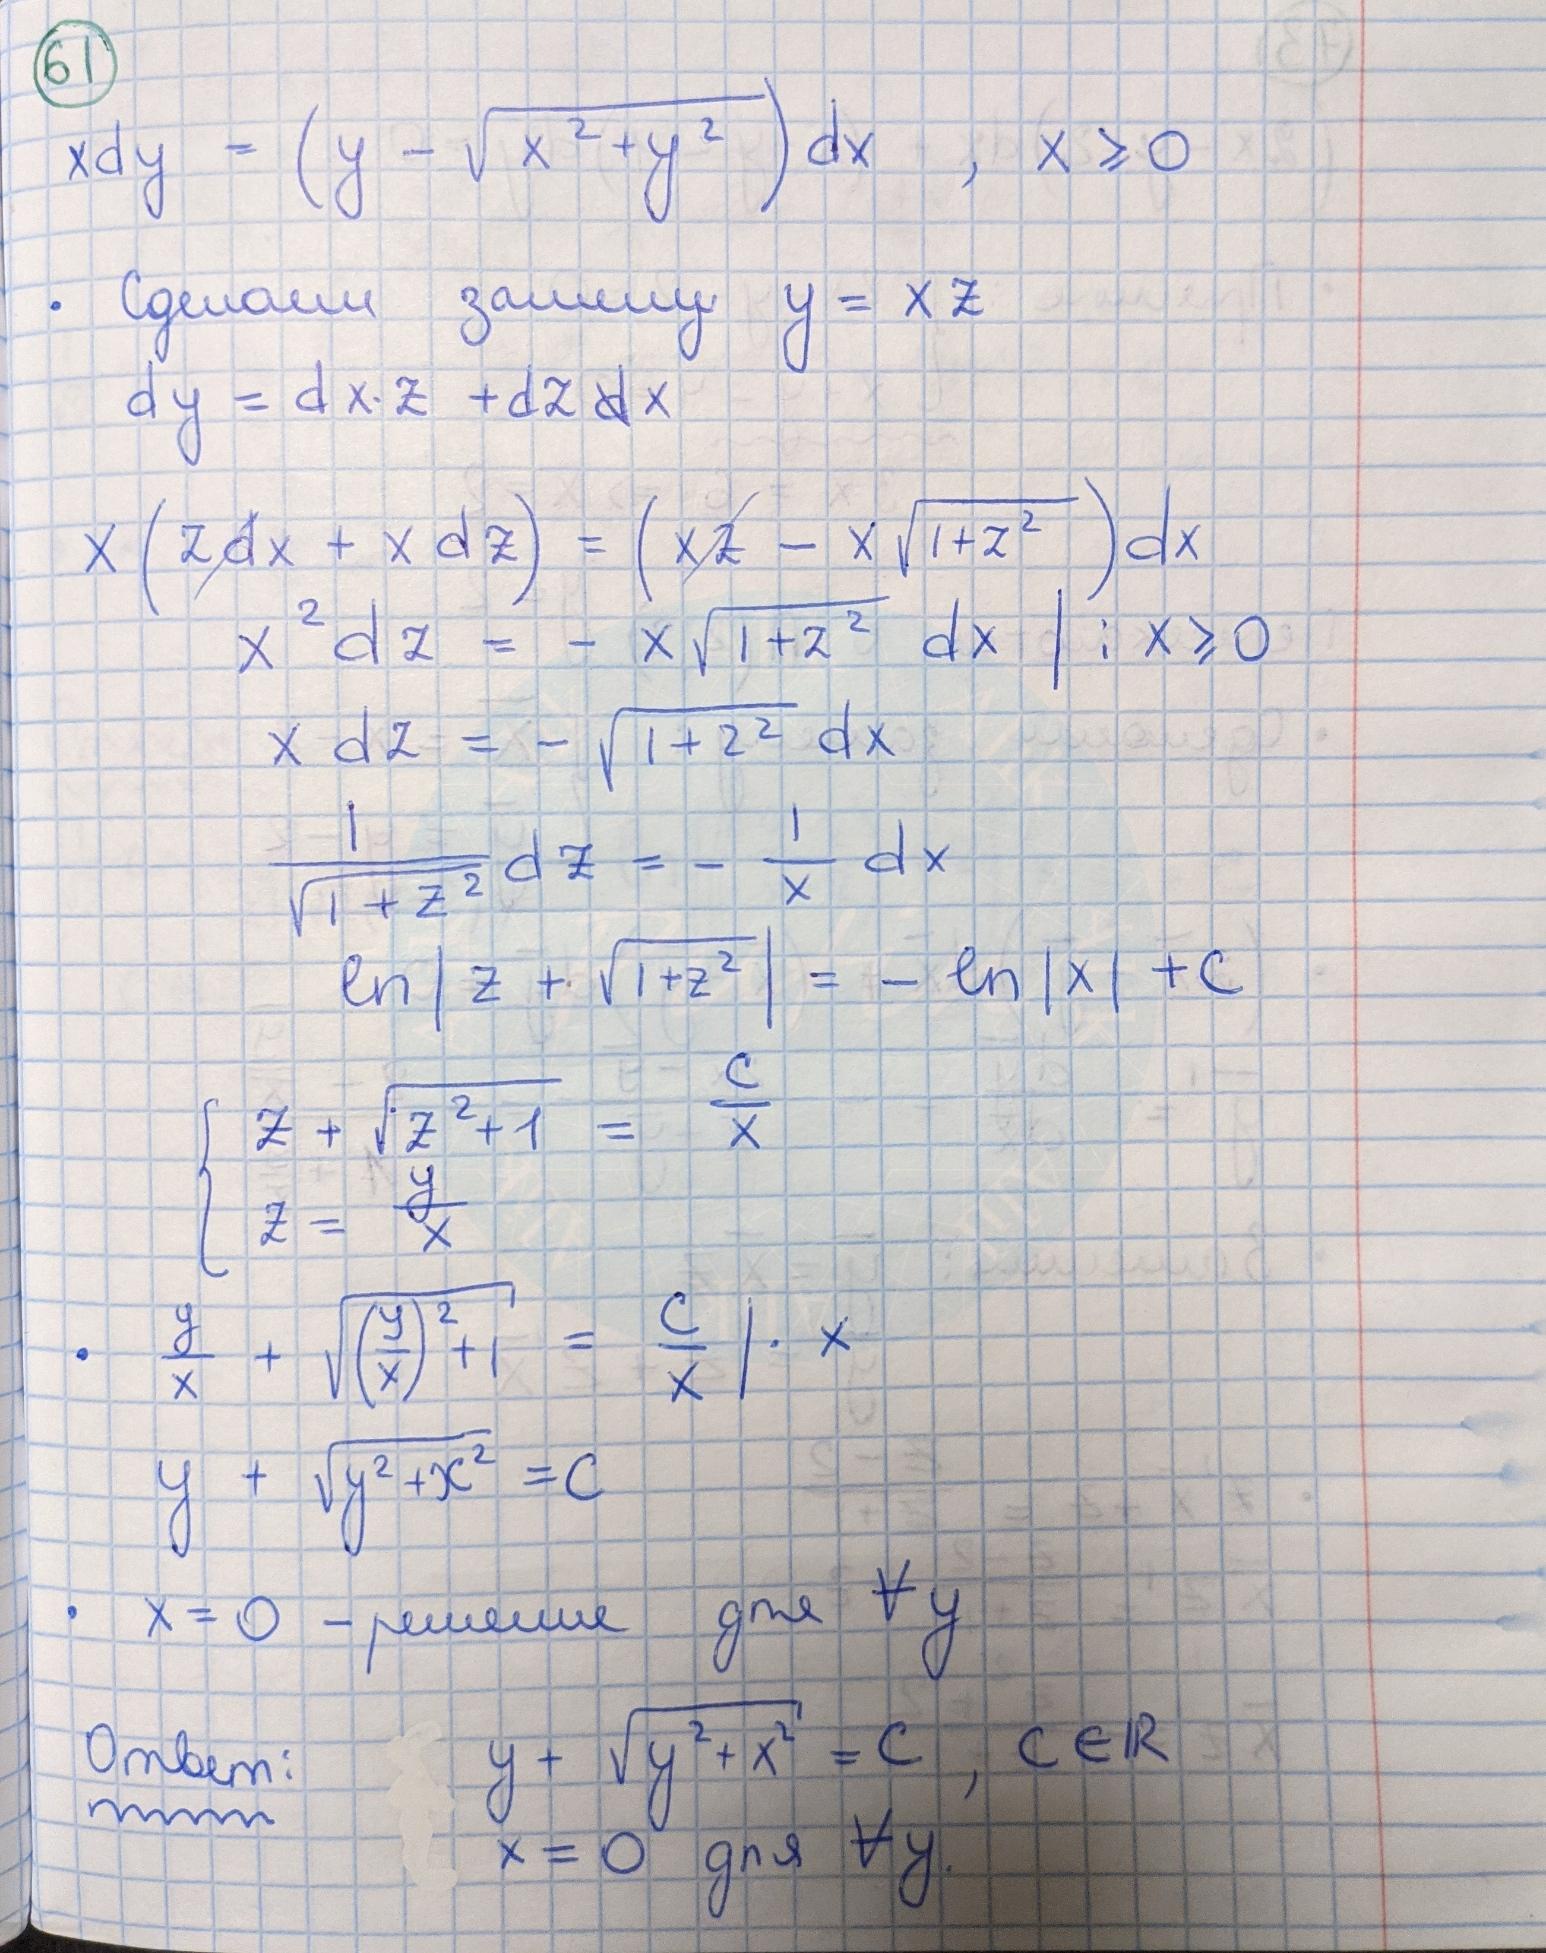 61
xdy = (y - √(x² + y²)) dx , x ⩾ 0
• Сделаем замену y = xz
dy = dx·z + dz dx
x(zdx + xdz) = (xz - x√(1+z²)) dx
x²dz = - x√(1+z²) dx | : x ⩾ 0
xdz = - √(1+z²) dx
1/√(1+z²) dz = - 1/x dx
ln|z + √(1+z²)| = - ln|x| + C
{ z + √(z²+1) = C/x
z = y/x
• y/x + √((y/x)² + 1) = C/x | · x
y + √(y²+x²) = C
• x = 0 - решение для ∀y
Ответ: y + √(y²+x²) = C , C ∈ ℝ
x = 0 для ∀y.